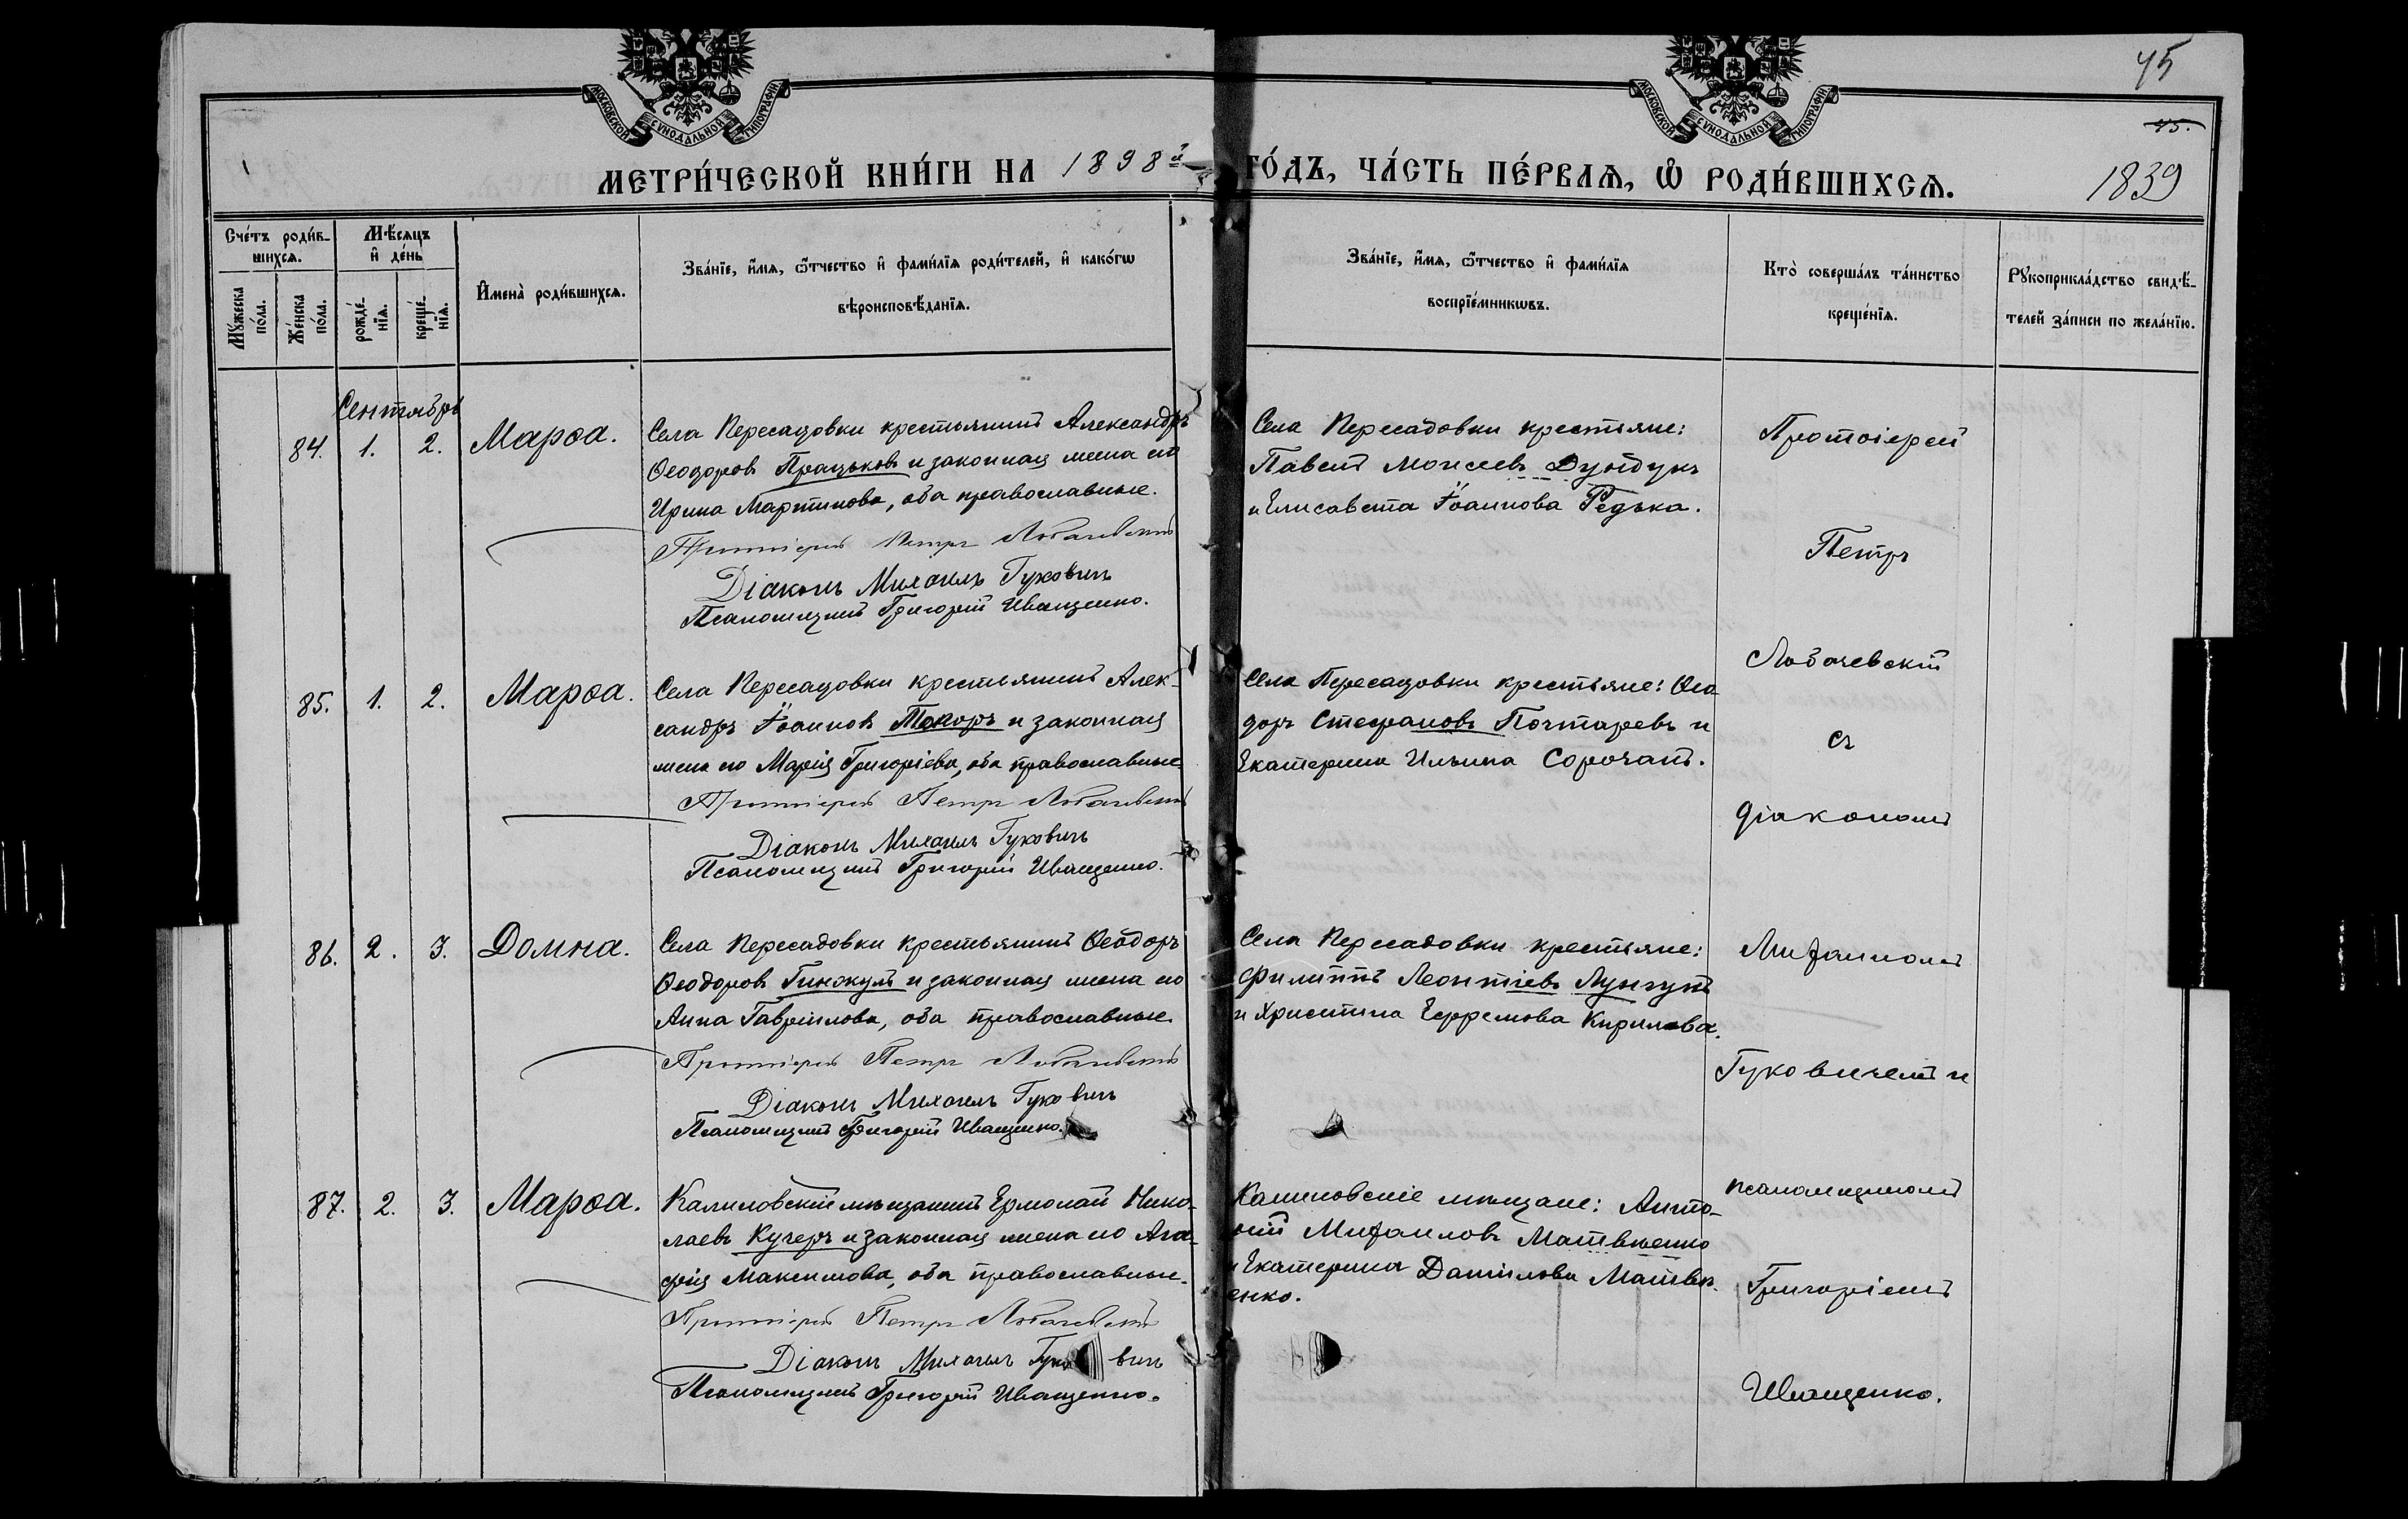 45
45.
1839
МОСКОВСКОЙ СѴНОДАЛЬНОЙ ТИПОГРАФІИ
МОСКОВСКОЙ СѴНОДАЛЬНОЙ ТИПОГРАФІИ
МЕТРИ́ЧЕСКОЙ КНИ́ГИ НА 1898й ГО́ДЪ, ЧА́СТЬ ПЕ́РВАѦ, Ѽ РОДИ́ВШИХСѦ.
Сче́тъ роди́в-
шихсѧ.
Мꙋ́жеска
по́ла.
Же́нска
по́ла.
Мѣ́сѧцъ
и҆ де́нь
рожде́-
нїѧ.
креще́-
нїѧ.
И҆мена̀ роди́вшихсѧ.
Зва́нїе, и҆́мѧ, ѻ҆́тчество и҆ фами́лїѧ роди́телей, и҆ како́гѡ
вѣроисповѣ́данїѧ.
Зва́нїе, и҆́мѧ, ѻ҆́тчество и҆ фами́лїѧ
воспрїе́мникѡвъ.
Кто̀ соверша́лъ та́инство
креще́нїѧ.
Рꙋкоприкла́дство свидѣ́-
телей за́писи по жела́нїю.
Сентябрь
84. 1. 2. Марѳа.
Села Пересадовки крестьянинъ Александръ
Ѳеодоровъ Працьковъ и законная жена его
Ирина Мартинова, оба православные.
Протоіерей Петръ Лобачевскій
Діаконъ Михаилъ Гуковичъ
Псаломщикъ Григорій Иващенко.
Села Пересадовки крестьяне:
Павелъ Моисеевъ Дундукъ
и Елисавета Іоаннова Редька.
85. 1. 2. Марѳа.
Села Пересадовки крестьянинъ Алек-
сандръ Іоанновъ Токоръ и законная
жена его Марія Григоріева, оба православные.
Протоіерей Петръ Лобачевскій
Діаконъ Михаилъ Гуковичъ
Псаломщикъ Григорій Иващенко.
Села Пересадовки крестьяне: Ѳео
доръ Стефановъ Почтаревъ и
Екатерина Ильина Сорочанъ.
86. 2. 3. Домна.
Села Пересадовки крестьянинъ Ѳеодоръ
Ѳеодоровъ Гинжулъ и законная жена его
Анна Гавріилова, оба православные.
Протоіерей Петръ Лобачевскій
Діаконъ Михаилъ Гуковичъ
Псаломщикъ Григорій Иващенко.
Села Пересадовки крестьяне:
Филиппъ Леонтіевъ Лунгулъ
и Христина Ефремова Кирилова.
87. 2. 3. Марѳа.
Калиновскій мѣщанинъ Ермолай Нико-
лаевъ Кучеръ и законная жена его Ага-
фія Максимова, оба православные.
Протоіерей Петръ Лобачевскій
Діаконъ Михаилъ Гуковичъ
Псаломщикъ Григорій Иващенко.
Калиновскіе мѣщане: Анто-
ній Михаиловъ Матвѣенко
и Екатерина Даніилова Матвѣ-
енко.
Протоіерей
Петръ
Лобачевскій
съ
діакономъ
Михаиломъ
Гуковичемъ и
псаломщикомъ
Григоріемъ
Иващенко.